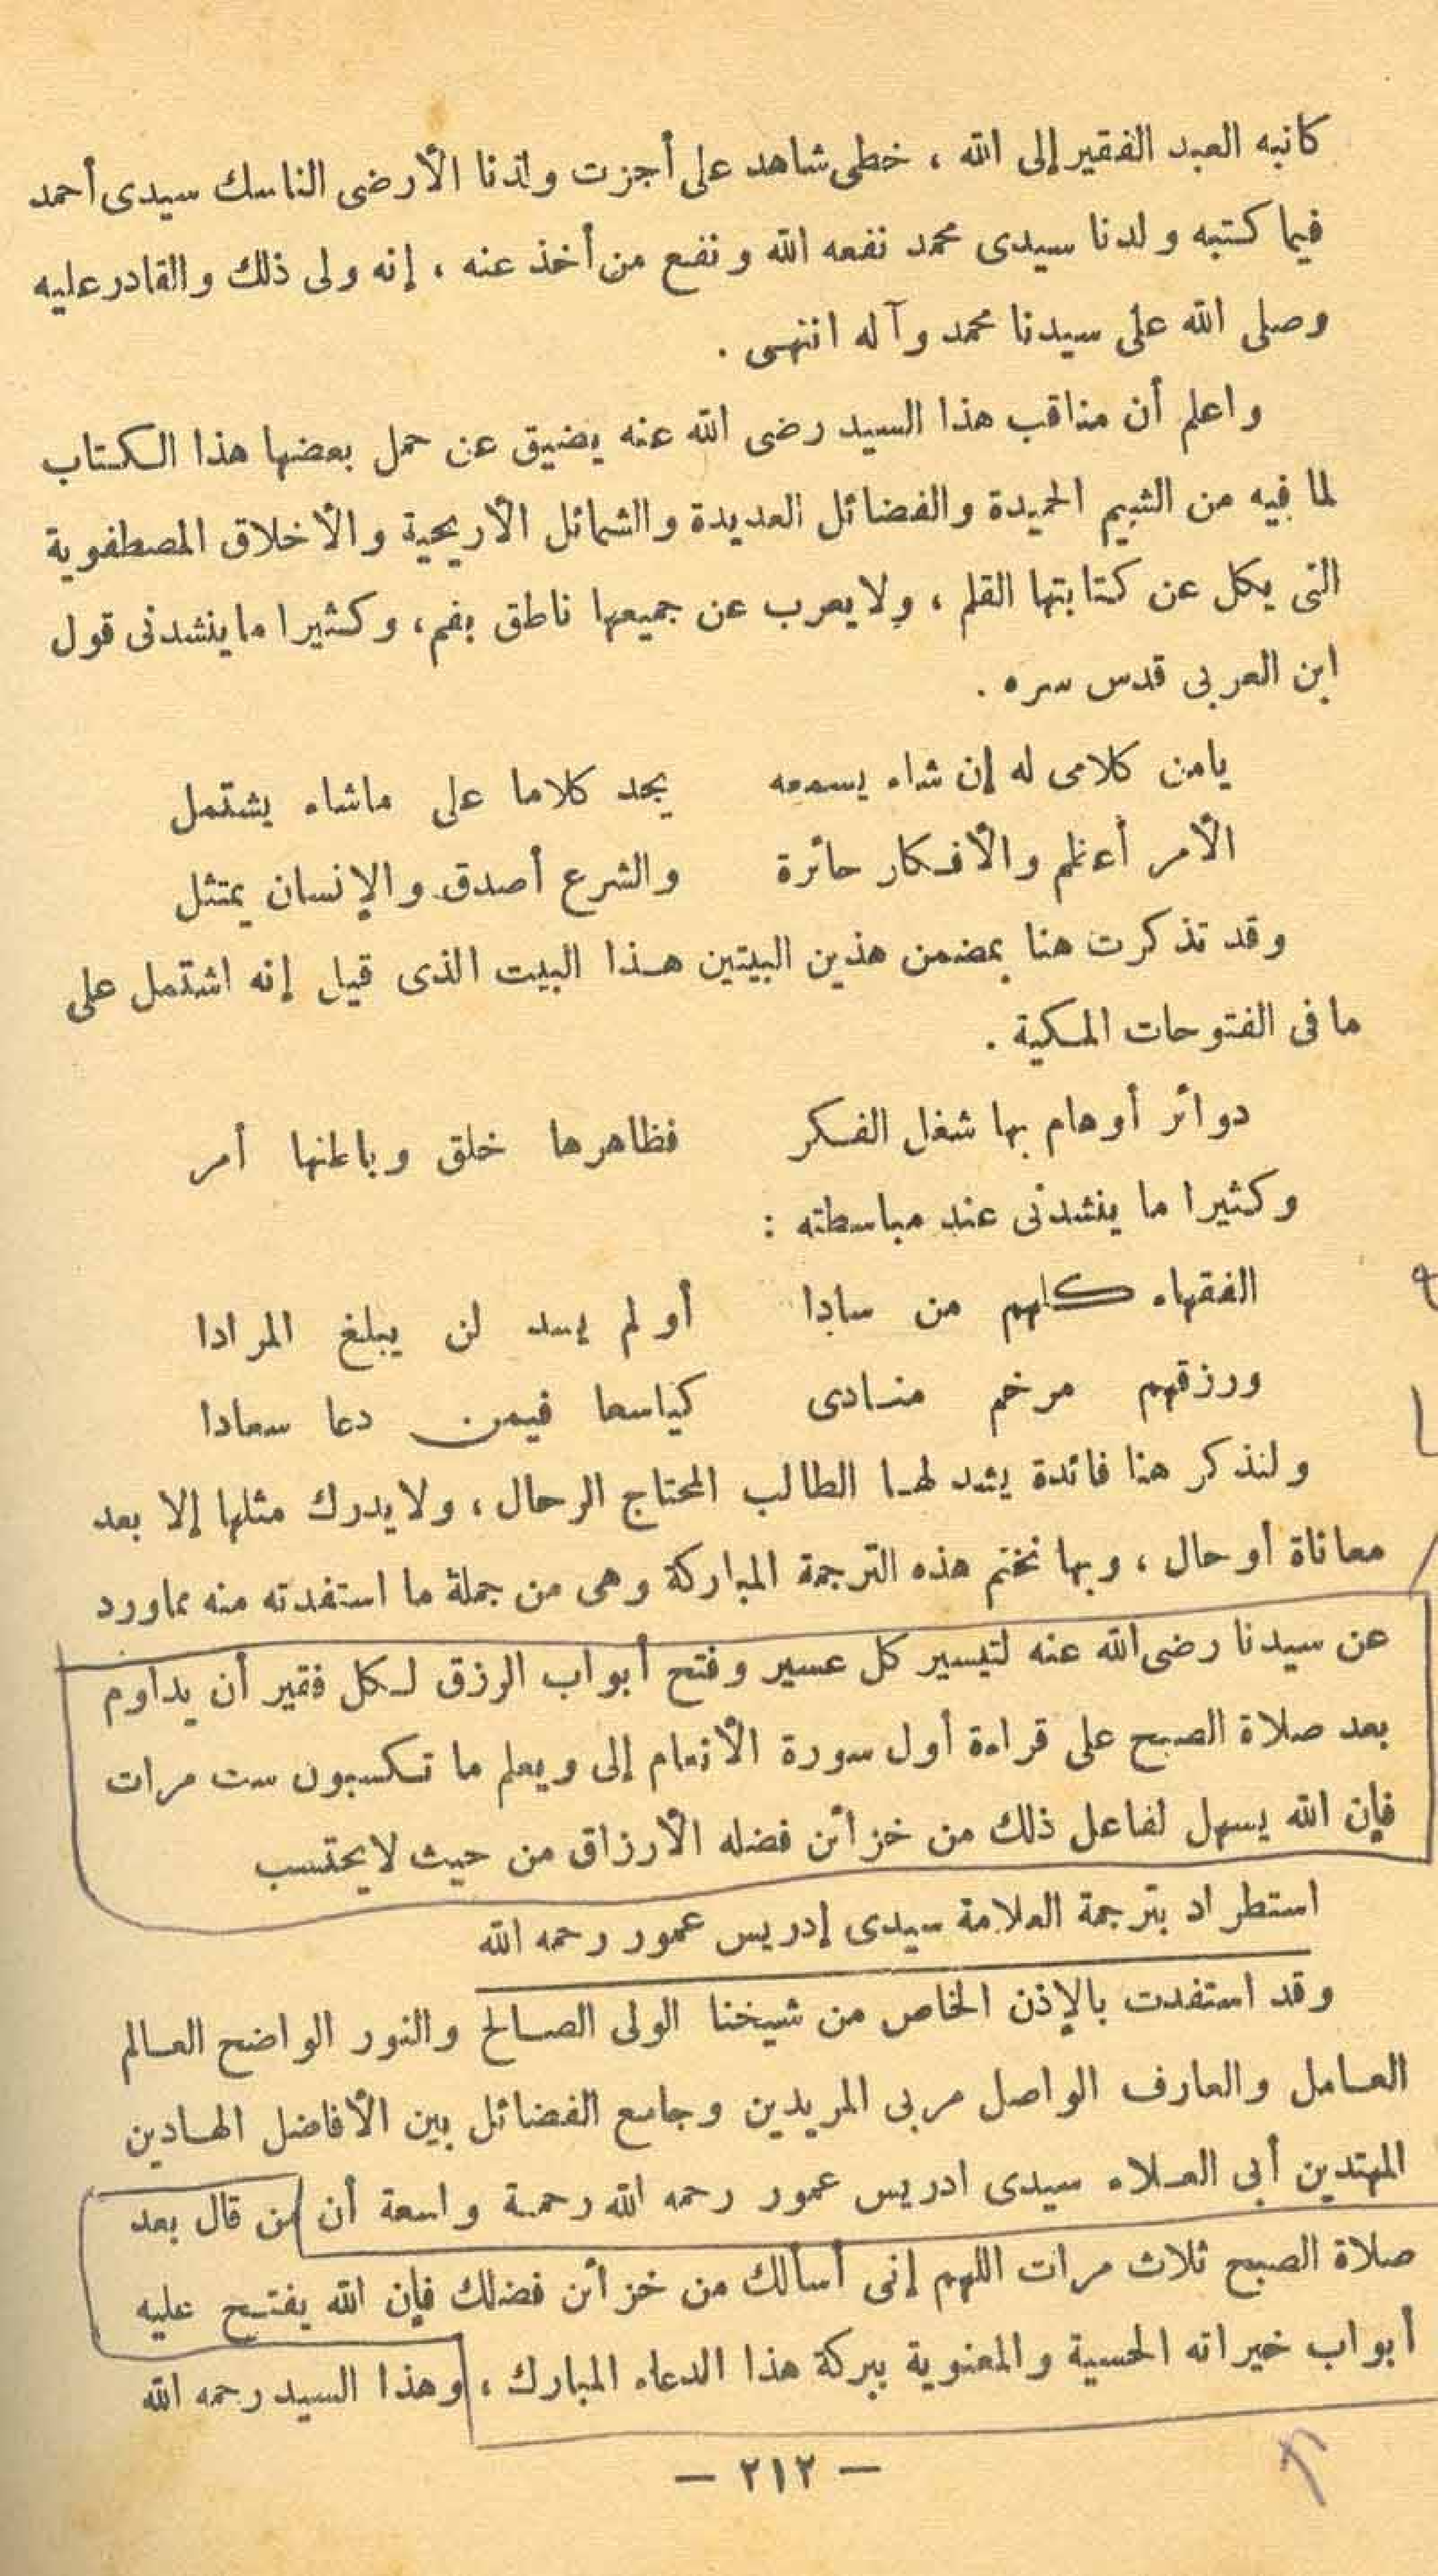 كاتبه العبد الفقير إلى الله ، خطى شاهد على أجزت ولدنا الأرضى الناسك سيدى أحمد
فيما كتبه ولدنا سيدى محمد نفعه الله ونفع من أخذ عنه ، إنه ولى ذلك والقادر عليه
وصلى الله على سيدنا محمد وآله انتهى .
واعلم أن مناقب هذا السيد رضى الله عنه يضيق عن حمل بعضها هذا الكتاب
لما فيه من الشيم الحميدة والفضائل العديدة والشمائل الأريحية والأخلاق المصطفوية
التى يكل عن كتابتها القلم ، ولا يعرب عن جميعها ناطق بفم ، وكثيرا ما ينشدنى قول
ابن العربى قدس سره .
يامن كلامى له إن شاء يسمعه يجد كلاما على ماشاء يشتمل
الأمر أعظم والأفكار حائرة والشرع أصدق والإنسان يمتثل
وقد تذكرت هنا بمضمن هذين البيتين هذا البيت الذى قيل إنه اشتمل على
ما فى الفتوحات المكية .
دوائر أوهام بها شغل الفكر فظاهرها خلق وباطنها أمر
وكثيرا ما ينشدنى عند مباسطته :
الفقهاء كلهم من سادا أو لم يسد لن يبلغ المرادا
ورزقهم مرخم منادى كياسعا فيمن دعا سعادا
ولنذكر هنا فائدة يشد لها الطالب المحتاج الرحال ، ولا يدرك مثلها إلا بعد
معاناة أوحال ، وبها نختم هذه الترجمة المباركة وهى من جملة ما استفدته منه مماورد
عن سيدنا رضى الله عنه لتيسير كل عسير وفتح أبواب الرزق لكل فقير أن يداوم
بعد صلاة الصبح على قراءة أول سورة الأنعام إلى ويعلم ما تكسبون ست مرات
فإن الله يسهل لفاعل ذلك من خزائن فضله الأرزاق من حيث لا يحتسب
استطراد بترجمة العلامة سيدى إدريس عمور رحمه الله
وقد استفدت بالإذن الخاص من شيخنا الولى الصالح والنور الواضح العالم
العامل والعارف الواصل مربى المريدين وجامع الفضائل بين الأفاضل الهادين
المهتدين أبى العلاء سيدى ادريس عمور رحمه الله رحمة واسعة أن من قال بعد
صلاة الصبح ثلاث مرات اللهم إنى أسألك من خزائن فضلك فإن الله يفتح عليه
أبواب خيراته الحسية والمعنوية ببركة هذا الدعاء المبارك ، وهذا السيد رحمه الله
— ٢١٢ —